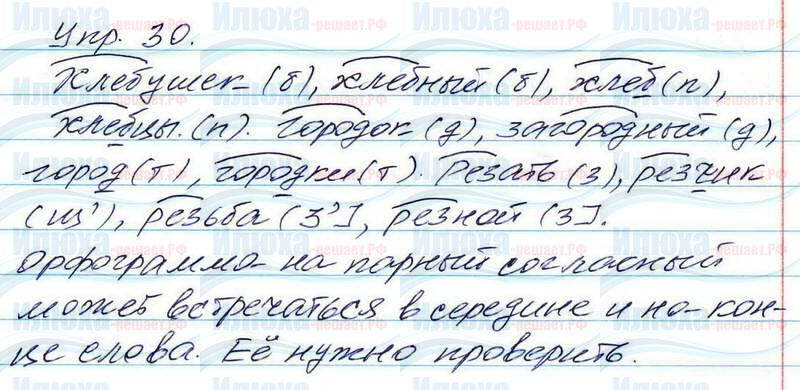 Упр. 30.
Хлебушек (б), хлебный (б), хлеб (п),
хлебцы. (п). Городок (д), загородный (д),
город (т), городки (т). Резать (з), резчик
(щ'), резьба (з'], резной (з].
орфограмма на парный согласный
может встречаться в середине и на кон-
це слова. Её нужно проверить.